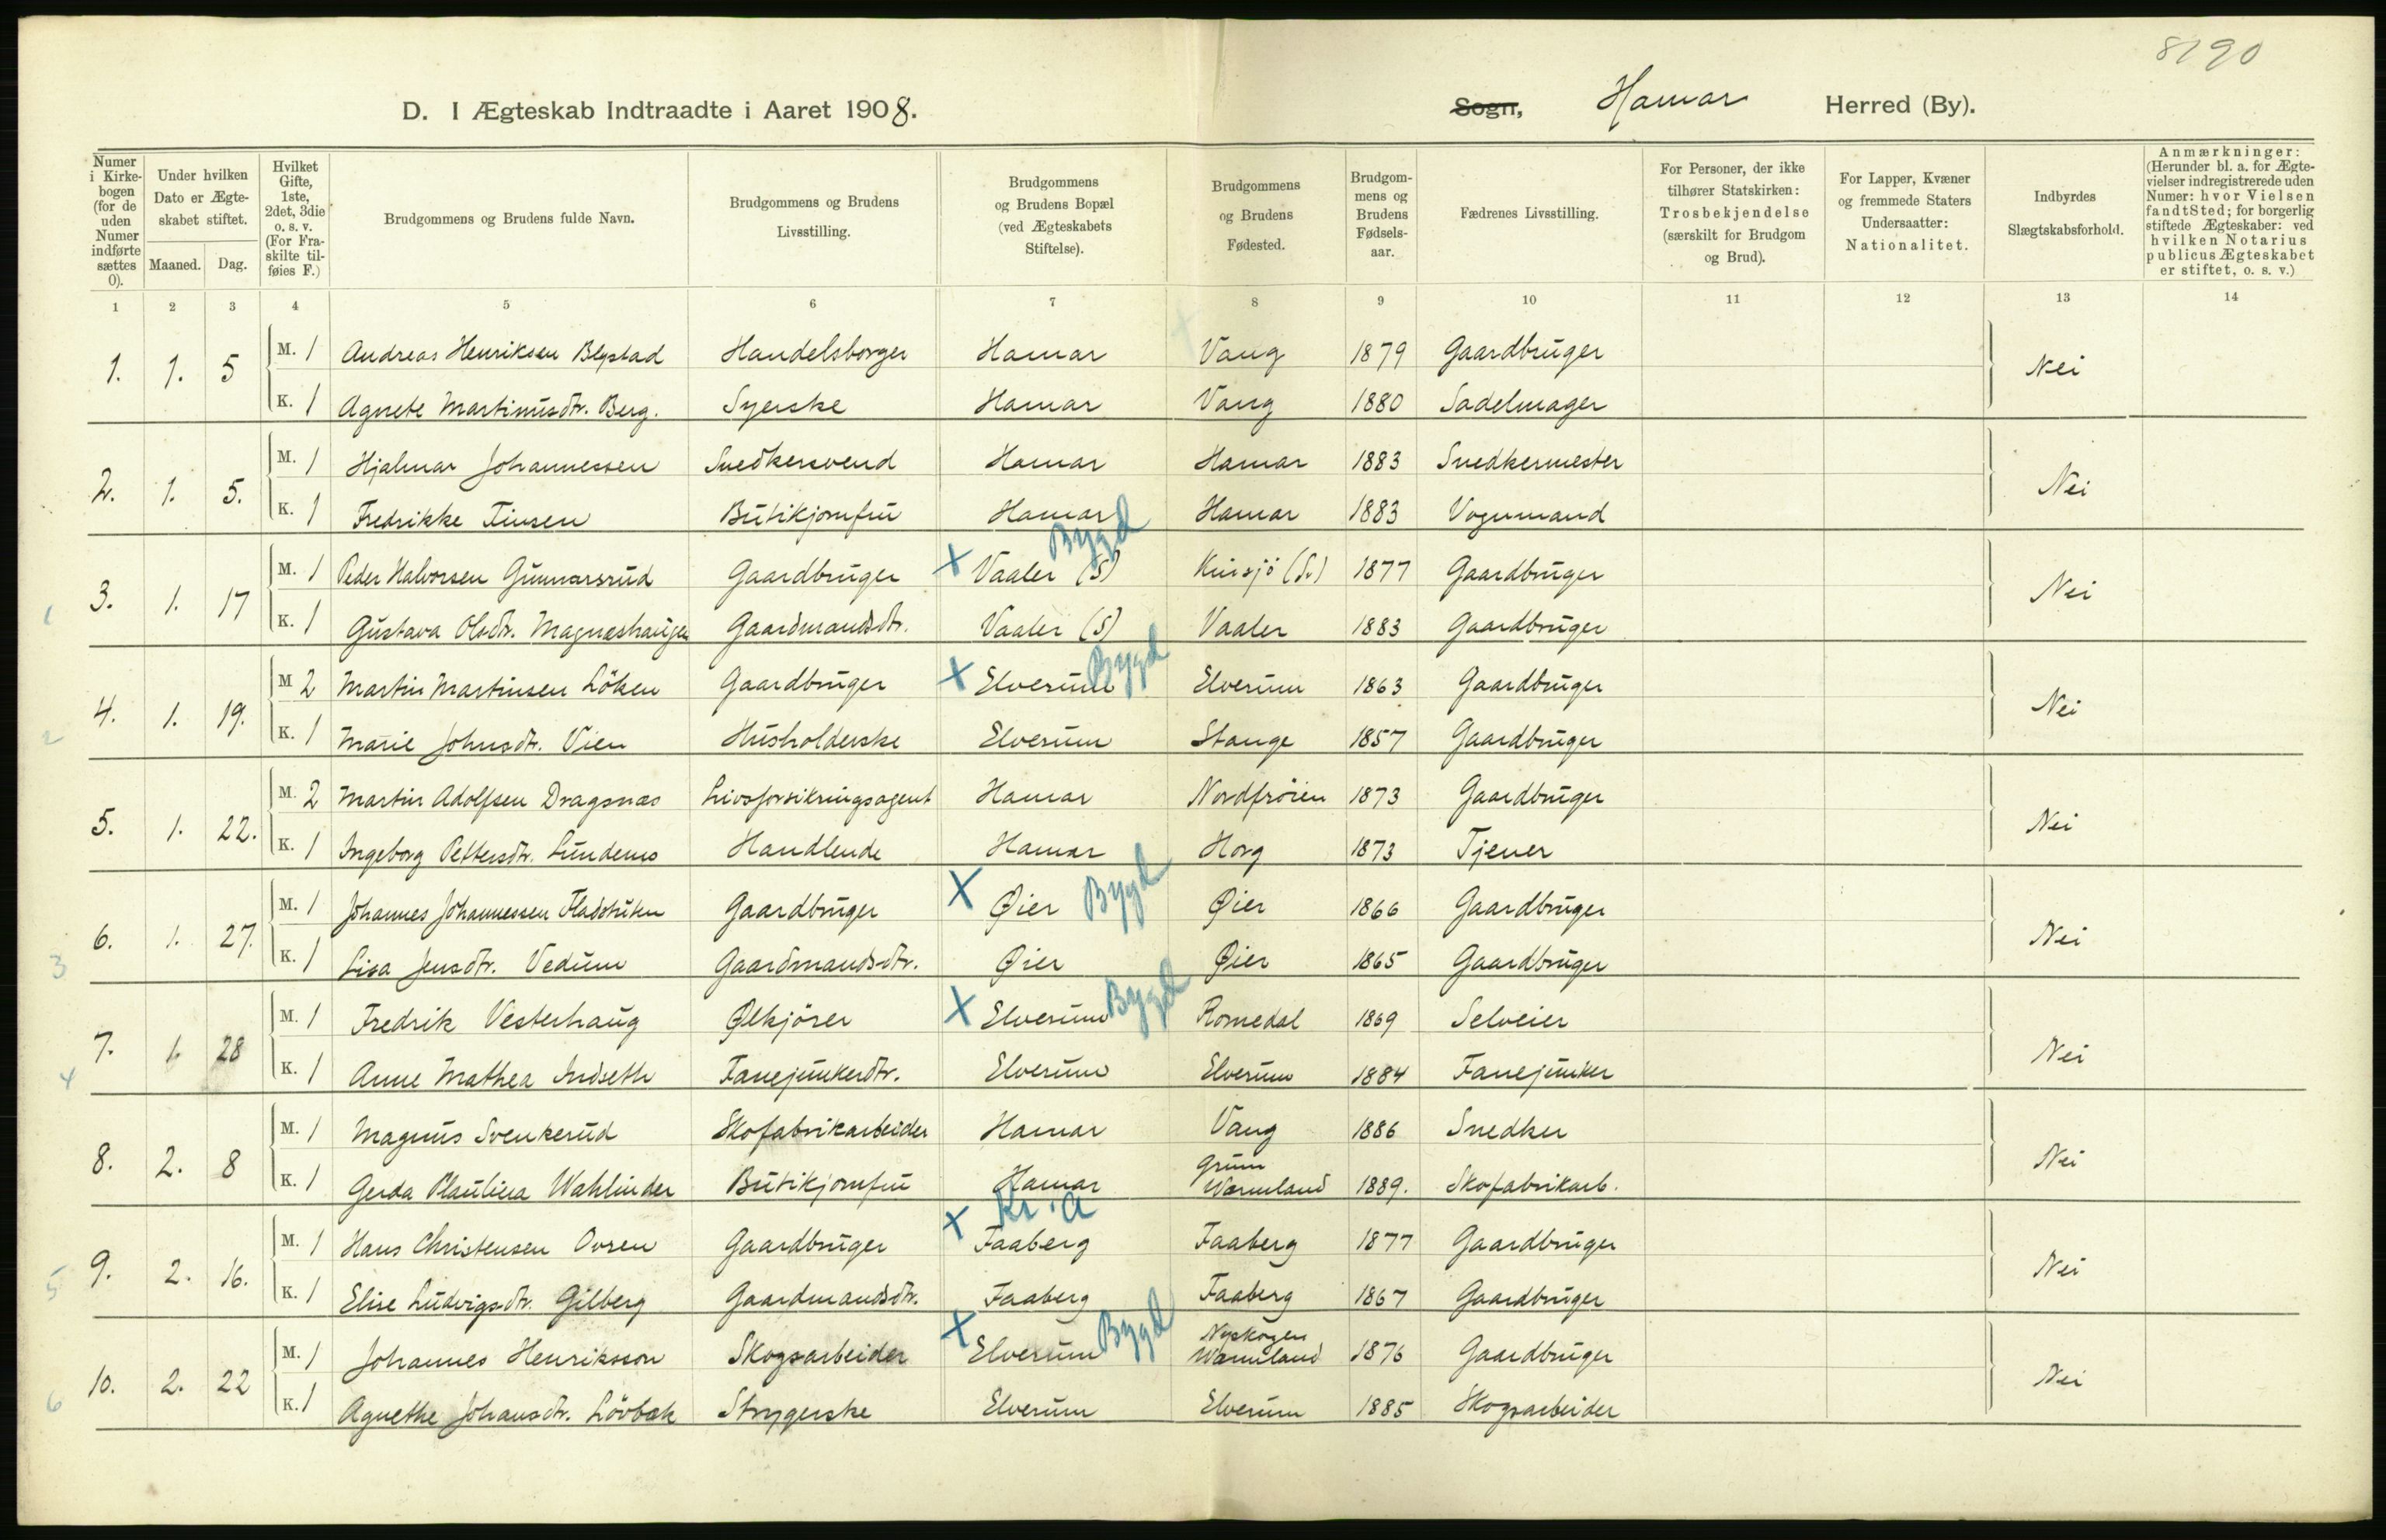 8190
D. I Ægteskab Indtraadte i Aaret 1908.
Sogn, Hamar Herred (By).
Numer i Kirkebogen (for de uden Numer indførte sættes 0).
Under hvilken Dato er Ægteskabet stiftet.
Maaned. Dag.
Hvilket Gifte, 1ste, 2det, 3die o. s. v. (For Fraskilte tilføies F.)
Brudgommens og Brudens fulde Navn.
Brudgommens og Brudens Livsstilling.
Brudgommens og Brudens Bopæl (ved Ægteskabets Stiftelse).
Brudgommens og Brudens Fødested.
Brudgommens og Brudens Fødselsaar.
Fædrenes Livsstilling.
For Personer, der ikke tilhører Statskirken: Trosbekjendelse (særskilt for Brudgom og Brud).
For Lapper, Kvæner og fremmede Staters Undersaatter: Nationalitet.
Indbyrdes Slægtskabsforhold.
Anmærkninger: (Herunder bl. a. for Ægtevielser indregistrerede uden Numer: hvor Vielsen fandt Sted; for borgerlig stiftede Ægteskaber: ved hvilken Notarius publicus Ægteskabet er stiftet, o. s. v.)
1 2 3 4 5 6 7 8 9 10 11 12 13 14
1. 1. 5 M. 1 Andreas Henriksen Blystad Handelsborger Hamar Vang 1879 Gaardbruger Nei
K. 1 Agnete Martinusdtr. Berg. Syerske Hamar Vang 1880 Sadelmager
2. 1. 5. M. 1 Hjalmar Johannessen Snedkersvend Hamar Hamar 1883 Snedkermester Nei
K. 1 Fredrikke Finsen Butikjomfru Hamar Hamar 1883 Vognmand
3. 1. 17 M. 1 Peder Halvorsen Gunnarsrud Gaardbruger X Vaaler (S) Bygd (S.) 1877 Gaardbruger Nei
1 K. 1 Gustava Olsdtr. Magneshaugen Gaardmandsdtr. Vaaler (S) Vaaler 1883 Gaardbruger
4. 1. 19. M 2 Martin Martinsen Löken Gaardbruger X Elverum Bygd Elverum 1863 Gaardbruger Nei
2 K. 1 Marie Johnsdtr. Vien Husholderske Elverum Stange 1857 Gaardbruger
5. 1. 22. M. 2 Martin Adolfsen Dragsnæs Livsforsikringsagent Hamar Nordfröien 1873 Gaardbruger Nei
K. 1 Ingeborg Pettersdtr. Lundemo Handlende Hamar Horg 1873 Tjener
6. 1. 27. M. 1 Johannes Johannessen Gaardbruger X Øier Bygd Øier 1866 Gaardbruger Nei
3 K. 1 Lisa Jensdtr. Vedum Gaardmandsdtr. Øier Øier 1865 Gaardbruger
7. 1. 28 M. 1 Fredrik Vesterhaug Ølkjörer X Elverum Bygd Romedal 1869 Selveier Nei
4 K. 1 Anne Mathea Indseth Fanejunkerdtr. Elverum Elverum 1884 Fanejunker
8. 2. 8 M. 1 Magnus Svenkerud Skofabrikarbeider Hamar Vang 1886 Snedker Nei
K. 1 Gerda Wahlinder Butikjomfru Hamar Grum Wermland 1889. Skofabrikarb.
9. 2. 16. M. 1 Hans Christensen Ovren Gaardbruger X Kr.a Faaberg Faaberg 1877 Gaardbruger Nei
5 K. 1 Elise Ludvigsdtr. Gilberg Gaardmandsdtr. Faaberg Faaberg 1867 Gaardbruger
10. 2. 22 M. 1 Johannes Henriksson Skogsarbeider X Elverum Bygd Nyskogen Wermland 1876 Gaardbruger Nei
6 K. 1 Agnethe Johansdtr. Lövbæk Strygerske Elverum Elverum 1885 Skogsarbeider